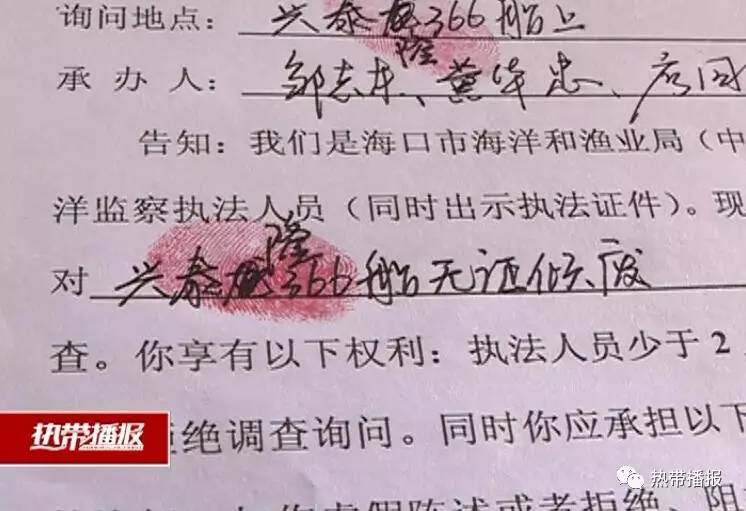 询问地点：兴泰隆366船上
承办人：邹志东、黄华忠、
告知：我们是海口市海洋和渔业局（中
洋监察执法人员（同时出示执法证件）。现
对兴泰隆366船无证倾废
查。你享有以下权利：执法人员少于2
绝调查询问。同时你应承担以下
热带播报
热带播报
你虚假陈述或者拒绝、阻